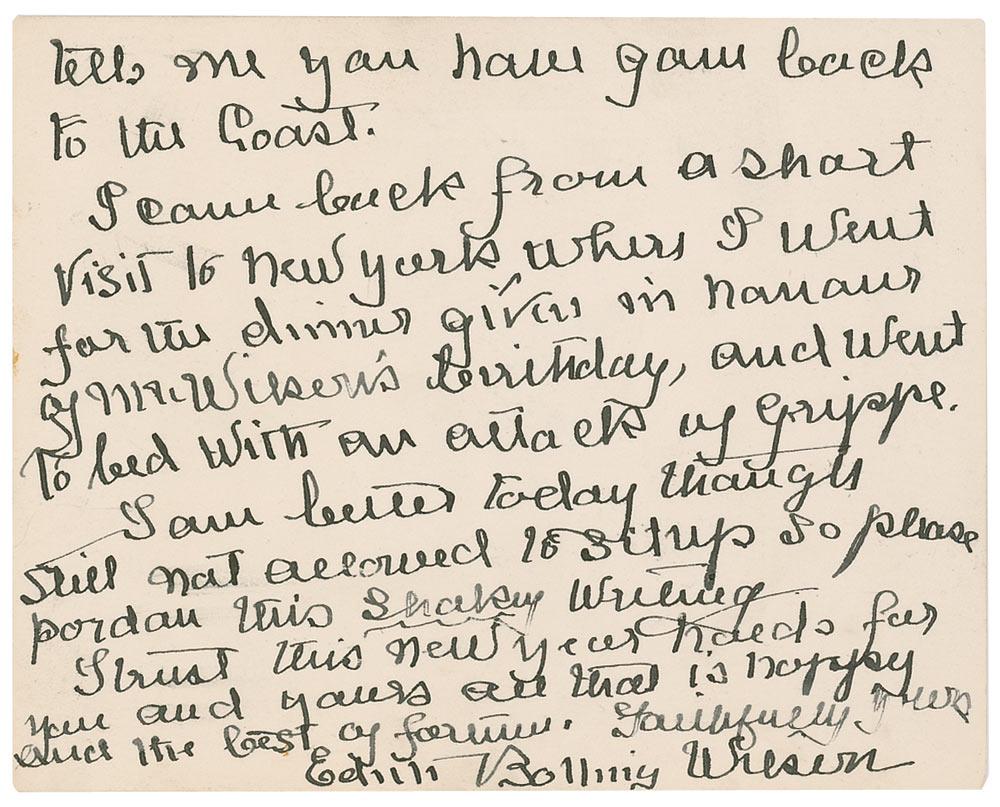 tells me you have gone back
to the Coast.
I came back from a short
visit to New York where I went
for the dinner given in honour
of Mr. Wilson's birthday, and went
to bed with an attack of Grippe.
I am better today though
still not allowed to sit up so please
pardon this shaky writing
I trust this New Year holds for
you and yours all that is happy
and the best of fortune. Faithfully yours
Edith Bolling Wilson